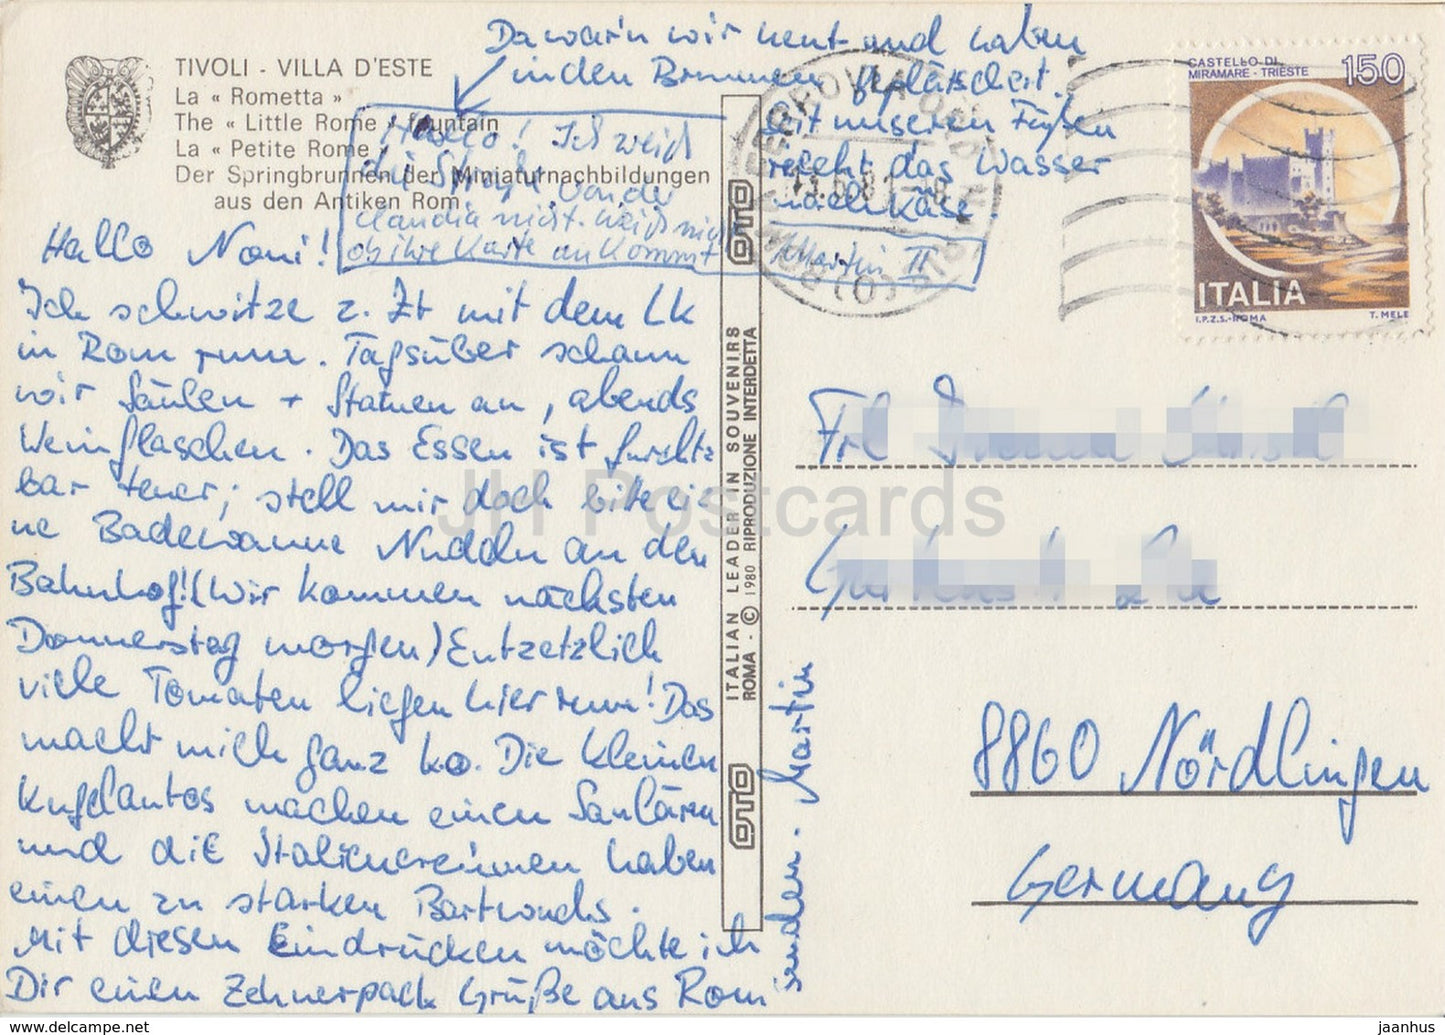 Da war'n wir heut und haben
in den Brunnen geplätschert.
Seit unseren Füßen
riecht das Wasser
nach Käse.
TIVOLI - VILLA D'ESTE
La « Rometta »
The « Little Rome » fountain
La « Petite Rome »
Der Springbrunnen der Miniaturnachbildungen
aus den Antiken Rom
Hallo! Ich weiß
die Straße von der
Claudia nicht. Weiß nicht
ob ihre Karte ankommt
Martin II
Hallo Noni!
Ich schwitze z. Zt mit dem Lk
in Rom rum. Tagsüber schaun
wir Säulen + Statuen an, abends
Weinflaschen. Das Essen ist furcht=
bar teuer; stell mir doch bitte ei=
ne Badewanne Nudeln an den
Bahnhof! (Wir kommen nächsten
Donnerstag morgen) Entzetzlich
viele Tomaten liegen hier rum! Das
macht mich ganz k.o. Die kleinen
Kugelautos machen einen Saulärm
und die Italienerinnen haben
einen zu starken Bartwuchs.
Mit diesen Eindrücken möchte ich
Dir einen Zehnerpack Grüße aus Rom
senden. Martin
OTO
ITALIAN LEADER IN SOUVENIRS
ROMA - © 1980 RIPRODUZIONE INTERDETTA
OTO
CASTELLO DI
MIRAMARE - TRIESTE
150
ITALIA
I.P.Z.S.-ROMA
T. MELE
Frl
8860 Nördlingen
Germany
JH Postcards
www.delcampe.net
jaanhus